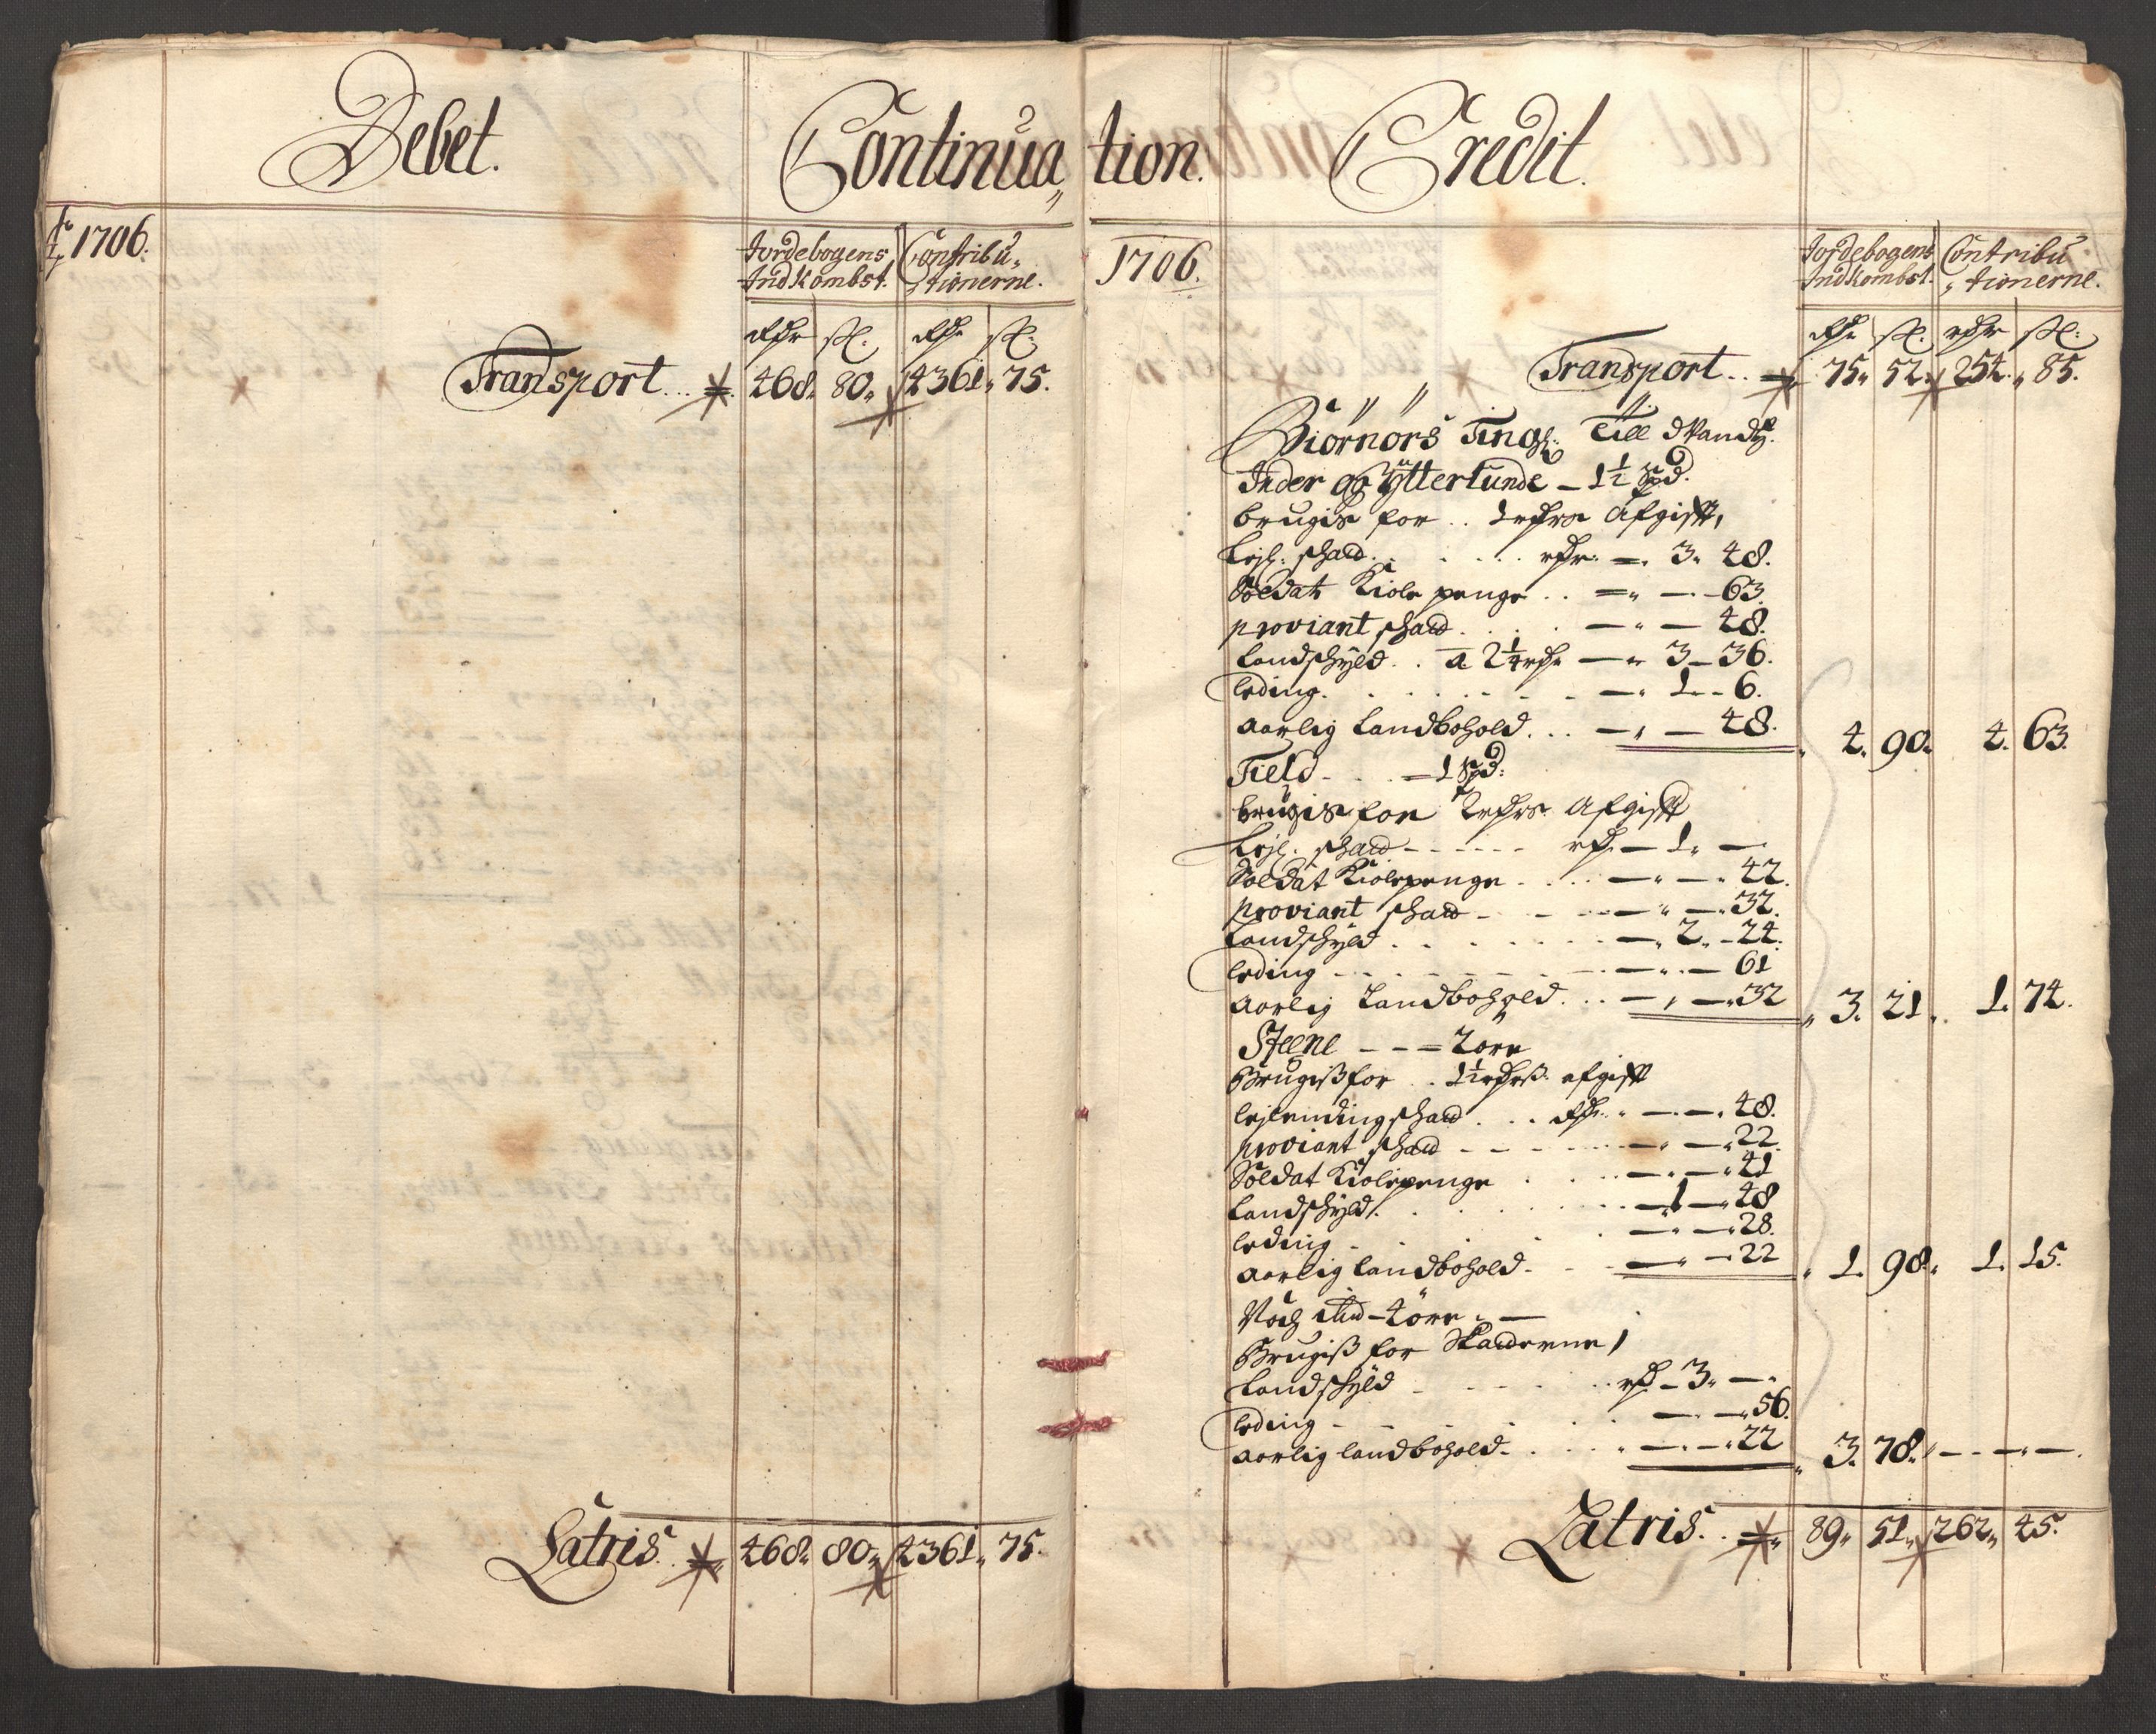 Debet. Continua„
Ao 1706.
Jordebogens Contribu„
IndKombst. „tionerne.
Rdr ß. Rdr ß.
Transport... 468„ 80„ 4361„ 75.
Latris. 468„ 80„ 4361„ 75.
tion. Credit.
1706.
Jordebogens Contribu
IndKombst. „tionerne.
Rdr ß. rdr ß.
Transport.. 75„ 52„ 254„ 85.
Biörnörs Ting„
Inder og Ytterlunde – 1½ Spd.
brugis for .. Afgift,
Lejl. schatt . . . rdr. – 3„ 48.
Soldat Kiole penge .. – „ – 63.
proviant schatt . . . – „ – 48.
Landschyld . . a 2¼ rdr – „ 3 – 36.
leding. . . . – „ 1 „ – 6.
aarlig Landbohold. .. – „ – 48. 4„ 90„ 4. 63.
Field – . . – 1 Spd:
brugis for 2 rdrs Afgift
Lejl. schatt – – – rdr – 1„ –
Soldat Kiolepenge . . . – „ – „ 42.
proviant schatt – – – – „ – „ 32.
Landschyld . . . – „ 2„ – 24.
leding – . . – – „ – 61
aarlig Landbohold. . . – „ – „ 32 3. 21„ 1. 74.
Steene – – – 2 öre
Brugiß for . . 1½ rdrß. afgift
lejlending schatt . . . Rdr. „ – „ – „ 48.
proviant schatt – – – – „ – „ 22.
Soldat Kiolepenge . . . – „ – „ 41
Landschyld . . . – „ 1 – „ 48
leding – . . . – „ – „ 28.
aarlig landbohold. . . – „ – „ 22 1. 98„ 1. 15.
Noch – 4 öre „ –
Brugiß for Skatterne,
Landschyld – . . . rd – 3„ –
leding – . . . – „ – „ 56.
aarlig landbohold. . . – „ – „ 22 3. 78. „ – – „ –
Latris. . 89„ 51„ 262„ 45.